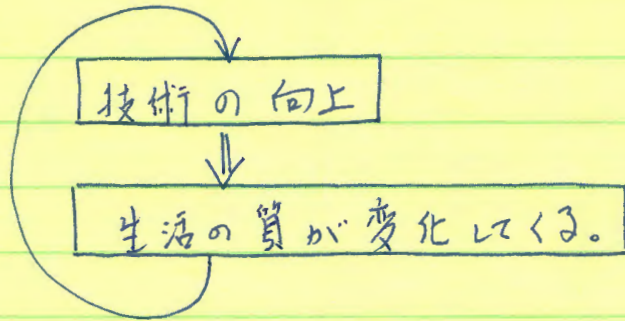 技術の向上
生活の質が変化してくる。